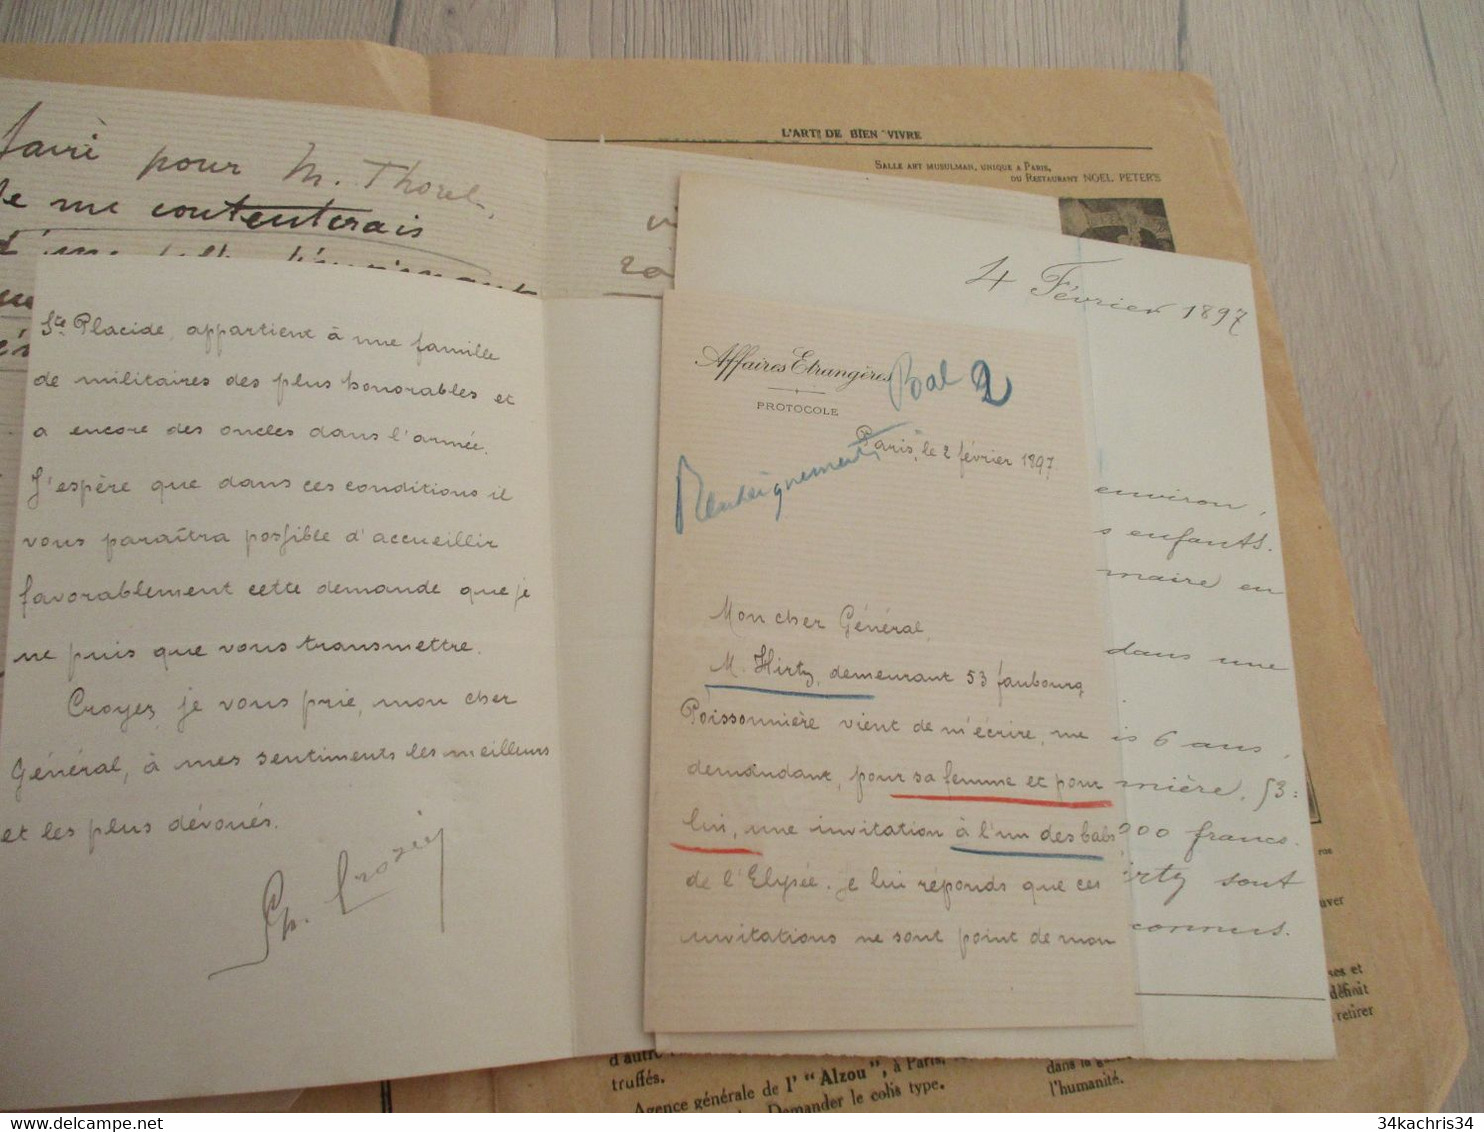 L'ART DE BIEN VIVRE
SALLE ART MUSULMAN, UNIQUE A PARIS,
DU RESTAURANT NOEL PETER'S
pour M. Thorel,
me contenterais
Ste Placide, appartient à une famille
de militaires des plus honorables et
a encore des oncles dans l'armée.
J'espère que dans ces conditions il
vous paraîtra possible d'accueillir
favorablement cette demande que je
ne puis que vous transmettre.
Croyez, je vous prie, mon cher
Général, à mes sentiments les meilleurs
et les plus dévoués.
Ph. Crozier
4 Février 1897
environ,
s enfants.
maire en
dans une
is 6 ans,
mière, 53:
200 francs.
irtz sont
connus.
Affaires Etrangères
PROTOCOLE
Bal 2
Renseignements
Paris, le 2 février 1897
Mon cher Général,
M. Hirtz, demeurant 53 faubourg
Poissonnière vient de m'écrire, me
demandant, pour sa femme et pour
lui, une invitation à l'un des bals
de l'Elysée. Je lui réponds que ces
invitations ne sont point de mon
rue
uver
ses et
déficit
retirer
d'autre
truffés.
Agence générale de l' "Alzou", à Paris,
Demander le colis type.
dans la
l'humanité.
34kachris34
34kachris34